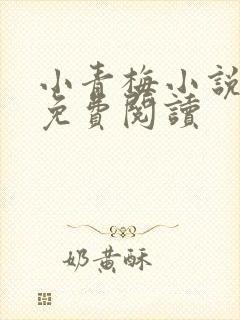 小青梅小説
免費閱讀
奶黃酥